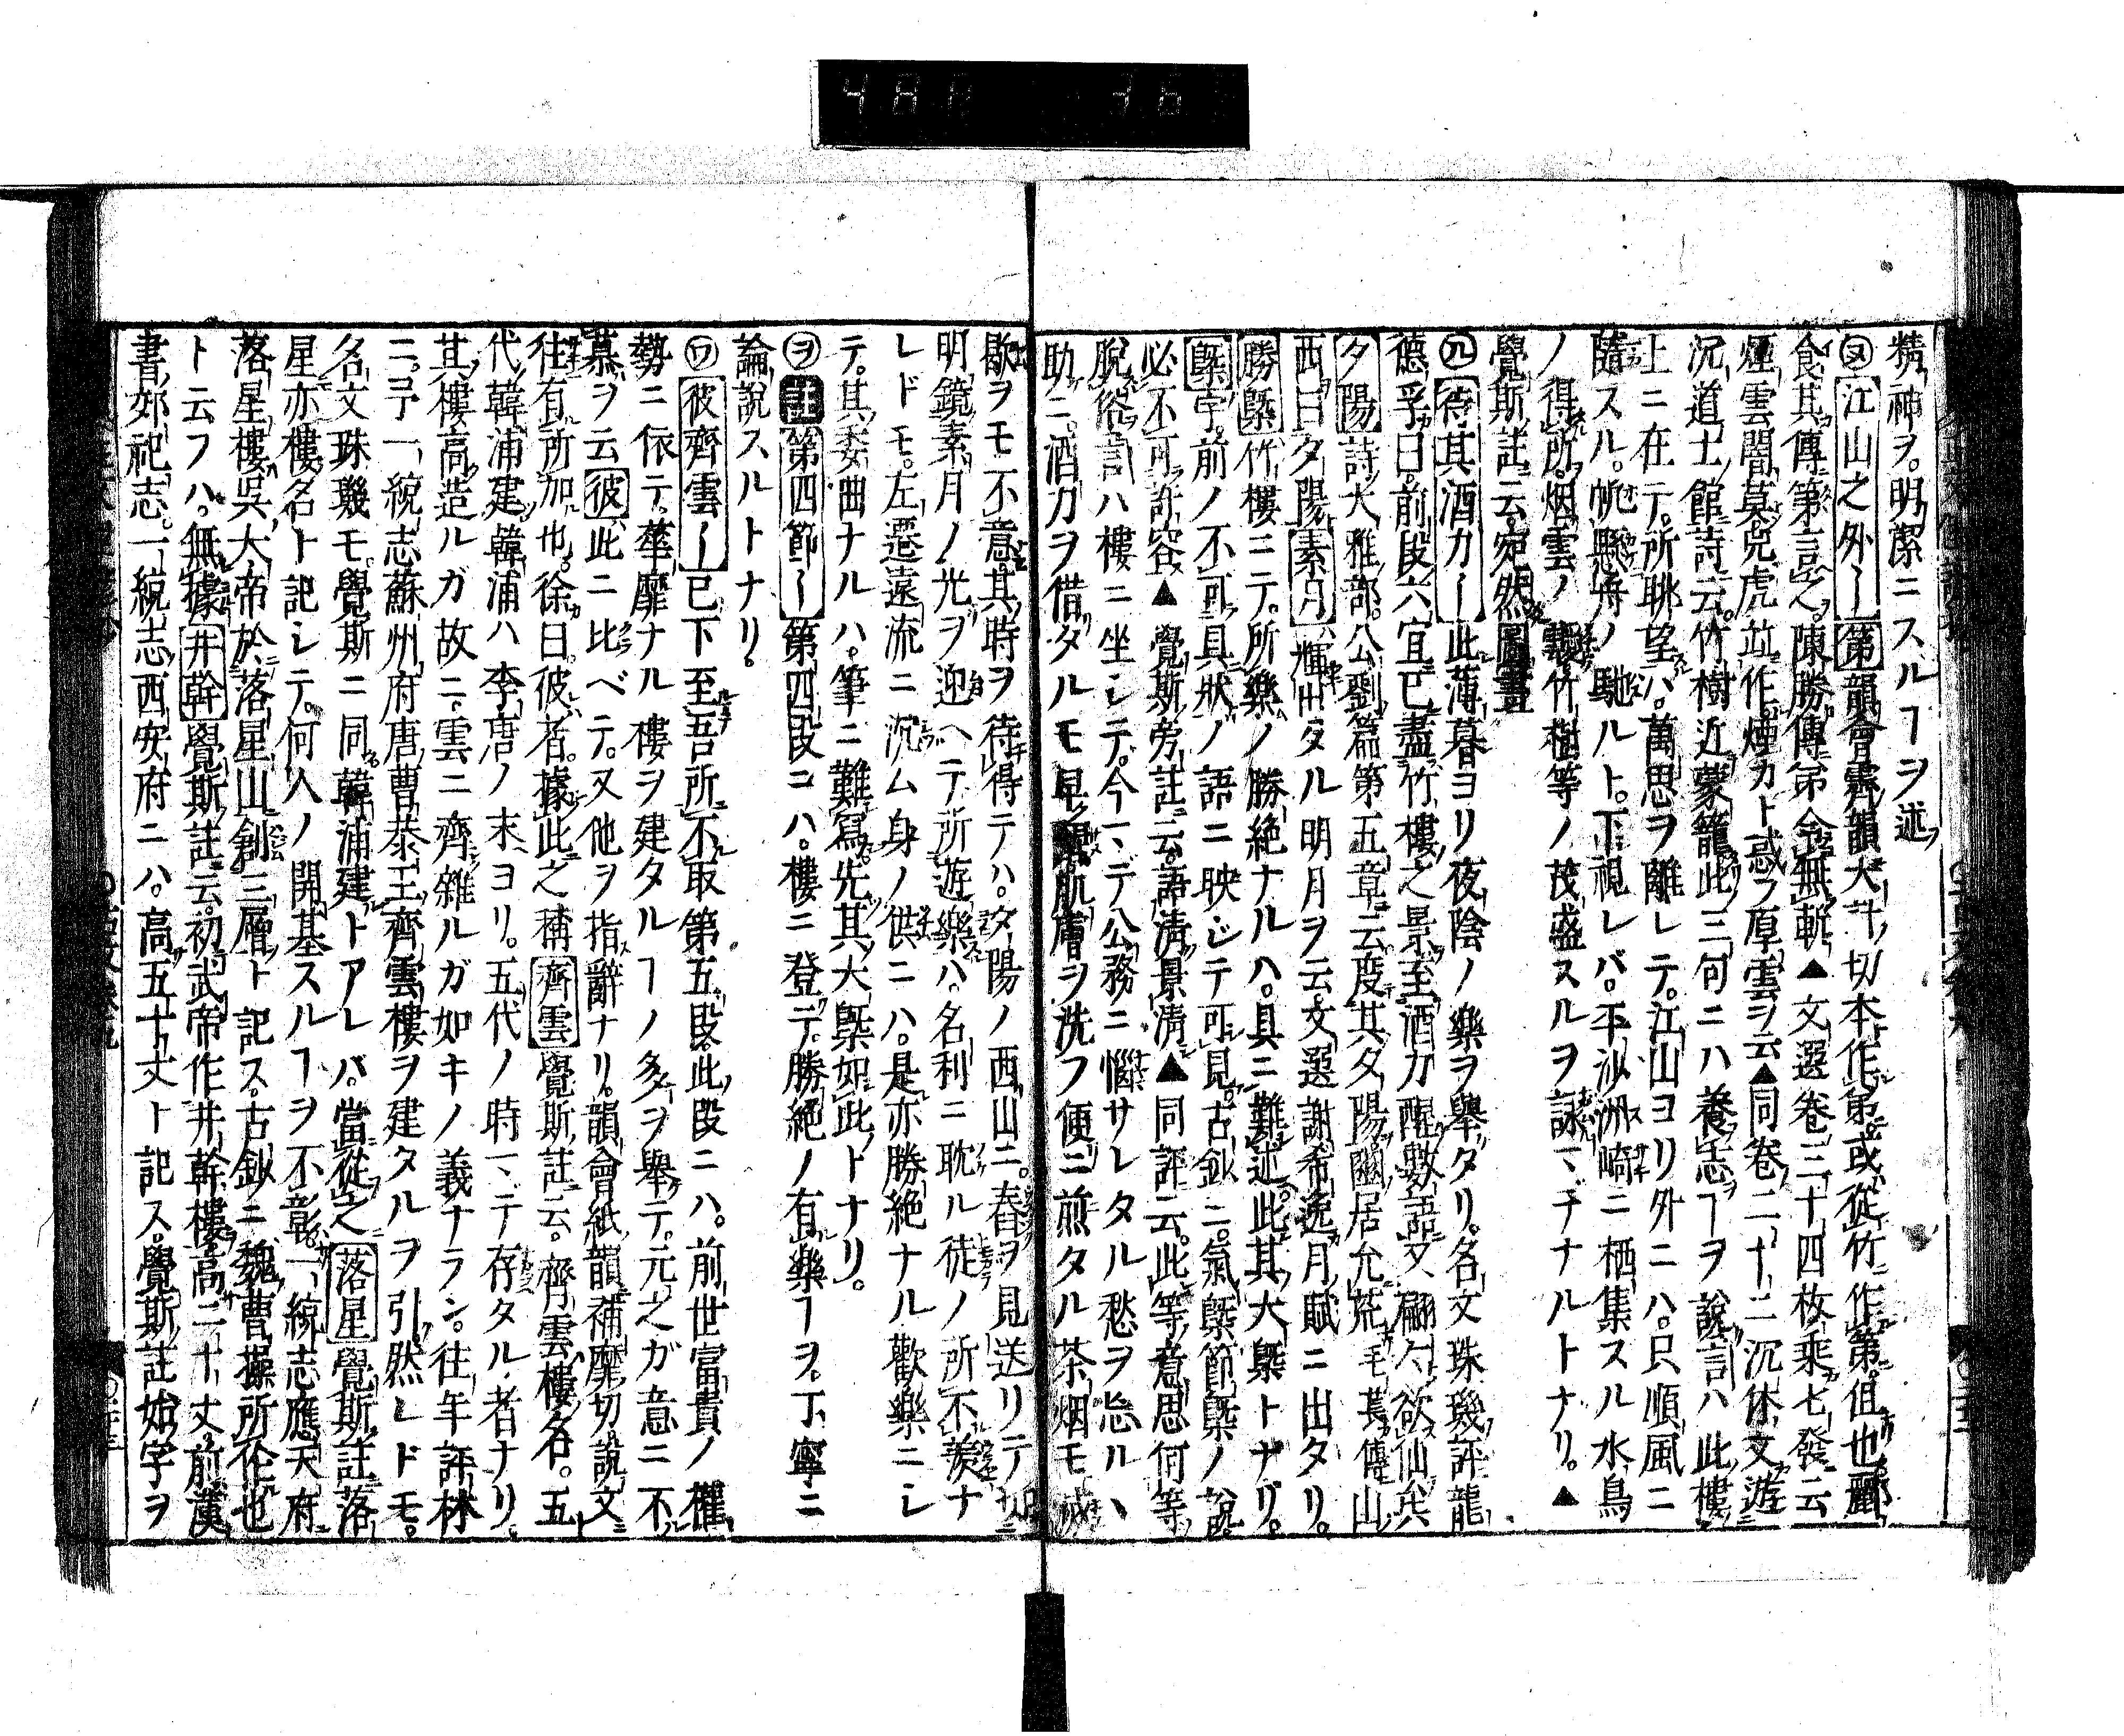 精神ヲ。明潔ニスルヿヲ述
㋦江山之外〡第韻會霽韻大計切本作弟。或從竹作第。但也酈
食其傳第言之。陳勝傳第令無斬▲文選卷三十四枚乘七發云
煙雲闇莫兕虎並作。煙カト惑フ厚雲ヲ云▲同卷二十二沉休文遊
沉道士館詩云。竹樹近蒙籠此三何ニハ養志ヿヲ說言ハ此樓
上ニ在テ。所眺望ハ。萬思ヲ離レテ。江山ヨリ外ニハ。只順風ニ
隨スル。帆懸舟ノ馳ルト。下視レバ。平沙洲崎ニ栖集スル水鳥
ノ得所。烟雲ノ靉。竹樹等ノ茂盛スルヲ詠マデナルトナリ。▲
覺斯註云。宛然圖畫
待其酒力〡此薄暮ヨリ夜陰ノ樂ヲ擧タリ。名文珠璣評龍
德孚曰。前段六宜已盡竹樓之景。至酒力醒數語又翩々欲仙矣
夕陽詩大雅部。公劉篇第五章云。度其夕陽。豳居允荒毛萇傳山
西曰夕陽素月輝出タル明月ヲ云文選謝希逸月賦ニ出タリ。
勝槩竹樓ニテ。所樂ノ勝絶ナルハ。具ニ難述。此其大槩トナリ。
槩字。前ノ不可具狀ノ語ニ映シテ可見。古鈔ニ。氣槩節槩ノ說。
必不可許容▲覺斯旁註云。語淸景淸▲同評云。此等意思何等
脫俗言ハ樓ニ坐シテ。今マデ公務ニ惱サレタル愁ヲ忘ルヽ
助ニ。酒力ヲ借タルモ早醒肌膚ヲ洗フ便ニ煎タル茶烟モ
歇ヲモ不意。其時ヲ待得テハ。夕陽ノ西山ニ。舂ヲ見送リテ
明鏡素月ノ光ヲ迎ヘテ所遊樂ハ。名利ニ耽ル徒ノ所不羨ナ
レドモ。左遷遠流ニ沉ム身ノ供ニハ。是亦勝絶ナル歡樂ニシ
テ。其委曲ナルハ。筆ニ難寫先其大槩如此トナリ。
㋾註第四節〡第四段ニハ。樓ニ登テ。勝絶ノ有樂ヿヲ。丁寧ニ
論說スルトナリ。
㋻彼齊雲〡已下至吾所不取第五段。此段ニハ。前世富貴ノ權
勢ニ依テ。華靡ナル樓ヲ建タルヿノ多ヲ擧テ。元之ガ意ニ不
慕ヲ云彼此ニ比ベテ。又他ヲ指辭ナリ。韻會紙韻補靡切。說文
往有所加也。徐曰。彼者。據此之稱齊雲覺斯註云。齊雲樓名。五
代韓浦建韓浦ハ李唐ノ末ヨリ。五代ノ時マテ存タル者ナリ。
其樓高造ルガ故ニ。雲ニ齊雜ルガ如キノ義ナラン。往年評林
ニ。予一統志蘇州府唐曹恭王齊雲樓ヲ建タルヲ引。然レドモ。
名文珠璣モ。覺斯ニ同韓浦建トアレバ。當從之落星覺斯註落
星亦樓名ト記シテ。何人ノ開基スルヿヲ不彰。一統志應天府
落星樓吳大帝於落星山創。三層ト記ス。古鈔ニ魏曹操所作也
ト云フハ。無據井幹覺斯註云。初武帝作井幹樓。高二十丈。前漢
書郊祀志。一統志西安府ニハ。高五十丈ト記ス。覺斯註始字ヲ